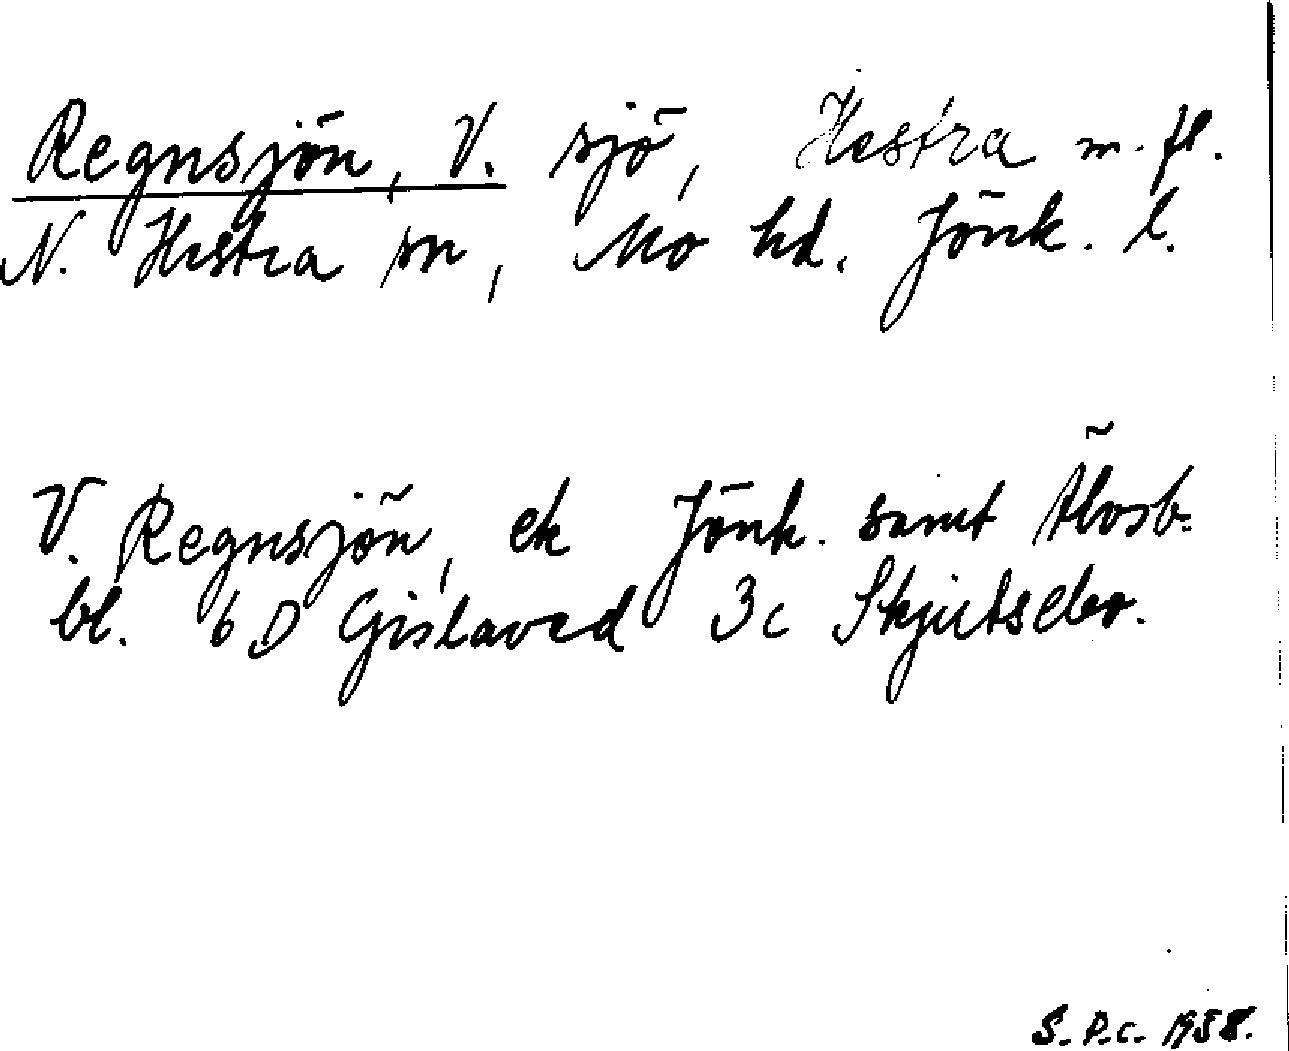 Regnsjön, V. sjö, Hestra m. fl.
N. Hestra sn, Mo hd. Jönk. l.
V. Regnsjön, ek Jönk. samt Älvsb.
bl. 6D Gislaved 3c Skjutsebo.
S. P.C. 1958.